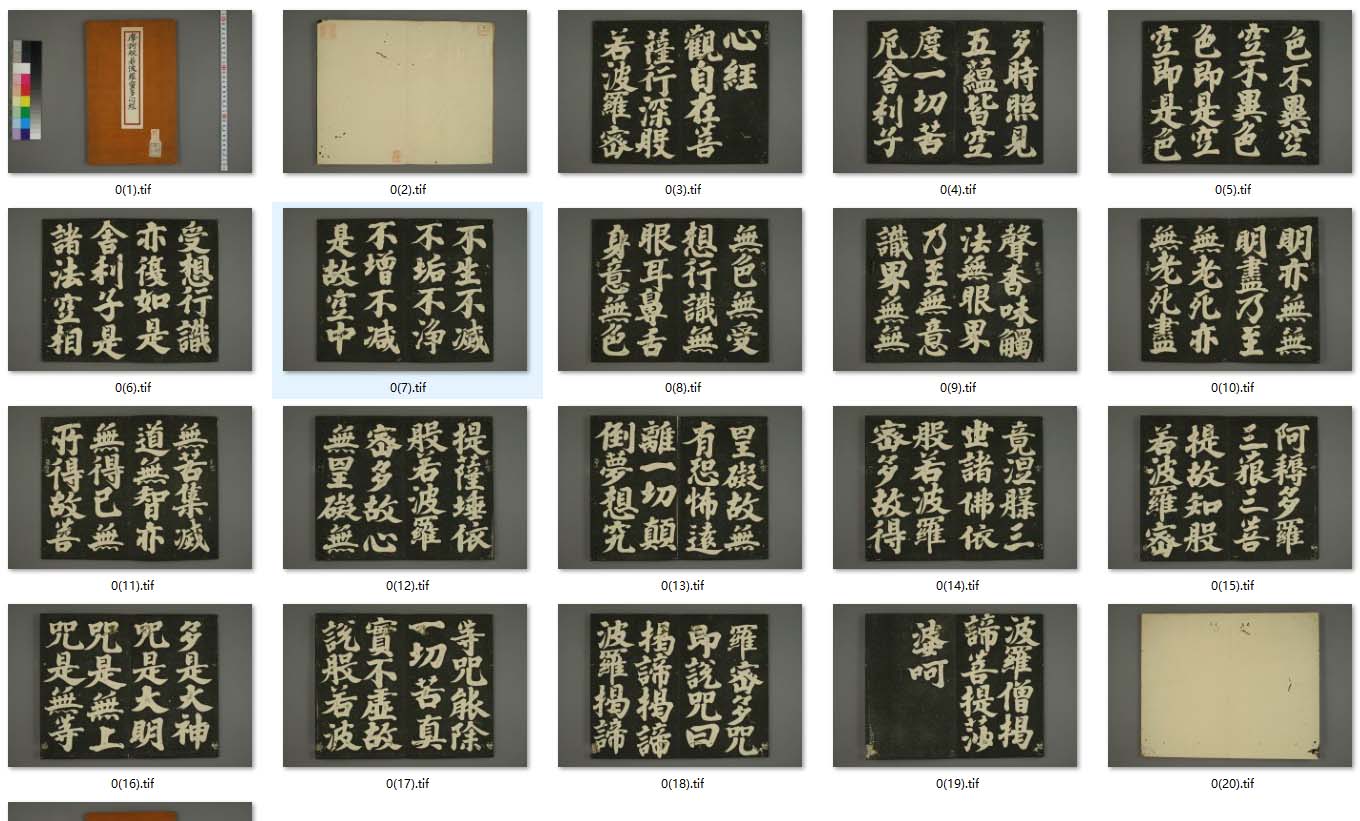 摩訶般若波羅蜜多心經
0(1).tif
0(2).tif
心經
觀自在菩
薩行深般
若波羅密
0(3).tif
多時照見
五蘊皆空
度一切苦
厄舍利子
0(4).tif
色不異空
空不異色
色即是空
空即是色
0(5).tif
受想行識
亦復如是
舍利子是
諸法空相
0(6).tif
不生不滅
不垢不净
不增不減
是故空中
0(7).tif
無色無受
想行識無
眼耳鼻舌
身意無色
0(8).tif
聲香味觸
法無眼界
乃至無意
識界無無
0(9).tif
明亦無無
明盡乃至
無老死亦
無老死盡
0(10).tif
無苦集滅
道無智亦
無得已無
所得故菩
0(11).tif
提薩埵依
般若波羅
密多故心
無罣礙無
0(12).tif
罣礙故無
有恐怖遠
離一切顛
倒夢想究
0(13).tif
竟涅槃三
世諸佛依
般若波羅
密多故得
0(14).tif
阿耨多羅
三藐三菩
提故知般
若波羅密
0(15).tif
多是大神
咒是大明
咒是無上
咒是無等
0(16).tif
等咒能除
一切苦真
實不虛故
說般若波
0(17).tif
羅密多咒
即說咒曰
揭諦揭諦
波羅揭諦
0(18).tif
波羅僧揭
諦菩提莎
婆呵
0(19).tif
0(20).tif